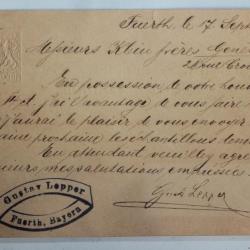 Fuerth, le 17 Sept
Messieurs Klein frères
En possession de votre hono
j'ai l'avantage de vous faire
j'aurai le plaisir de vous envoyer
aine prochaine les échantillons
En attendant veuillez agré
mes salutations
Gust. Lepper
Gustav Lepper
Fuerth, Bayern